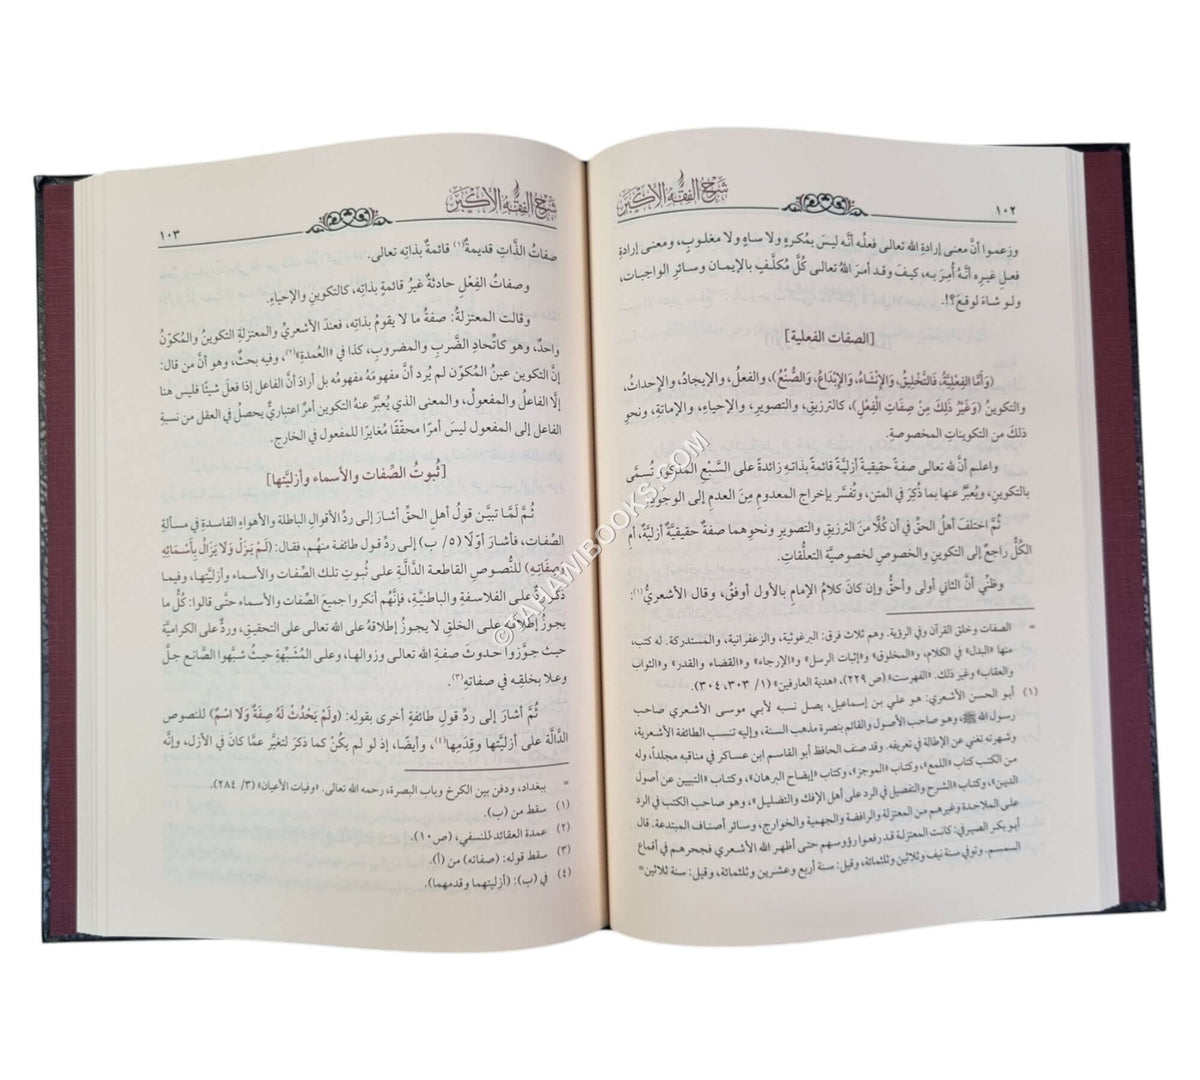 ١٠٢
شرح الفقه الأكبر
وزعموا أنَّ معنى إرادةِ الله تعالى فعلَه أنَّه ليسَ بمُكرهٍ ولا ساهٍ ولا مغلوبٍ، ومعنى إرادةِ
فعلِ غيرِه أنَّهُ أمرَ به، كيفَ وقد أمرَ اللهُ تعالى كُلَّ مُكلَّفٍ بالإيمان وسائرِ الواجبات،
ولو شاءَ لوقعَ؟!.
[الصفات الفعلية]
(وَأَمَّا الفِعْلِيَّةُ، فَالتَّخْلِيقُ، وَالإِنْشَاءُ، وَالإِبْدَاعُ، وَالصُّنْعُ)، والفعلُ، والإيجادُ، والإحداثُ،
والتكوينُ (وَغَيْرُ ذَلِكَ مِنْ صِفَاتِ الْفِعْلِ)، كالترزيقِ، والتصويرِ، والإحياءِ، والإماتةِ، ونحوِ
ذلكَ من التكويناتِ المخصوصةِ.
واعلم أنَّ لله تعالى صفةً حقيقيةً أزليَّةً قائمةً بذاتهِ زائدةً على السَّبْعِ المذكورِ، تُسمَّى
بالتكوينِ، ويُعبَّرُ عنها بما ذُكِرَ في المتن، وتُفسَّر بإخراج المعدومِ مِنَ العدمِ إلى الوجودِ.
ثُمَّ اختلفَ أهلُ الحقِّ في أن كُلًّا منَ الترزيقِ والتصويرِ ونحوِهما صفةٌ حقيقيَّةٌ أزليَّةٌ، أمِ
الكُلُّ راجعٌ إلى التكوين والخصوصِ لخصوصيَّةِ التعلُّقاتِ.
وظنِّي أنَّ الثاني أولى وأحقُّ، وإن كانَ كلامُ الإمام بالأول أوفقُ، وقال الأشعريُّ(١):
= الصفات وخلق القرآن وفي الرؤية. وهم ثلاث فرق: البرغوثية، والزعفرانية، والمستدركة. له كتب،
منها «البدل» في الكلام، و«المخلوق» و«إثبات الرسل» و«الإرجاء» و«القضاء والقدر» و«الثواب
والعقاب» وغير ذلك. «الفهرست» (ص ٢٢٩)، «هدية العارفين» (١/ ٣٠٣، ٣٠٤).
(١) أبو الحسن الأشعري: هو علي بن إسماعيل، يصل نسبه لأبي موسى الأشعري صاحب
رسول الله ﷺ، وهو صاحب الأصول والقائم بنصرة مذهب السنة، وإليه تنسب الطائفة الأشعرية،
وشهرته تغني عن الإطالة في تعريفه. وقد صنف الحافظ أبو القاسم ابن عساكر في مناقبه مجلداً، وله
من الكتب كتاب «اللمع»، وكتاب «الموجز»، وكتاب «إيضاح البرهان»، وكتاب «التبيين عن أصول
الدين»، وكتاب «الشرح والتفصيل في الرد على أهل الإفك والتضليل»، وهو صاحب الكتب في الرد
على الملاحدة وغيرهم من المعتزلة والرافضة والجهمية والخوارج، وسائر أصناف المبتدعة. قال
أبو بكر الصيرفي: كانت المعتزلة قد رفعوا رؤوسهم حتى أظهر الله الأشعري فحجرهم في أقماع
السمسم. وتوفي سنة نيف وثلاثين وثلثمائة، وقيل: سنة أربع وعشرين وثلثمائة، وقيل: سنة ثلاثين=
شرح الفقه الأكبر
١٠٣
صفاتُ الذَّاتِ قديمةٌ(١) قائمةٌ بذاتِه تعالى.
وصفاتُ الفِعْلِ حادثةٌ غيرُ قائمةٍ بذاتِه، كالتكوينِ والإحياءِ.
وقالت المعتزلةُ: صفةُ ما لا يقومُ بذاتِه، فعندَ الأشعريِّ والمعتزلةِ التكوينُ والمُكوَّنُ
واحدٌ، وهو كاتِّحادِ الضَّربِ والمضروبِ، كذا في «العُمدةِ»(٢)، وفيه بحثٌ، وهو أنَّ من قال:
إنَّ التكوينَ عينُ المُكوَّنِ لم يُرد أنَّ مفهومَهُ مفهومُه بل أرادَ أنَّ الفاعل إذا فعلَ شيئًا فليس هنا
إلَّا الفاعلُ والمفعولُ، والمعنى الذي يُعبَّرُ عنهُ التكوينِ أمرٌ اعتباريٌّ يحصلُ في العقل من نسبةِ
الفاعل إلى المفعول ليسَ أمرًا محقَّقًا مُغايرًا للمفعول في الخارج.
[ثُبوتُ الصِّفات والأسماء وأزليَّتها]
ثُمَّ لَمَّا تبيَّن قولُ أهلِ الحقِّ أشارَ إلى ردِّ الأقوالِ الباطلة والأهواءِ الفاسدةِ في مسألةِ
الصِّفات، فأشارَ أوَّلًا (٥/ ب) إلى ردِّ قولِ طائفةٍ منهُم، فقالَ: (لَمْ يَزَلْ وَلَا يَزَالُ بِأَسْمَائِهِ
وَصِفَاتِهِ) للنُّصوصِ القاطعةِ الدَّالَّةِ على ثُبوتِ تلك الصِّفاتِ والأسماء وأزليَّتها، وفيما
ذكرَ ردٌّ على الفلاسفةِ والباطنيَّةِ، فإنَّهم أنكروا جميعَ الصِّفاتِ والأسماءِ حتَّى قالوا: كُلُّ ما
يجوزُ إطلاقُه على الخلقِ لا يجوزُ إطلاقُهُ على الله تعالى على التحقيقِ، وردٌّ على الكراميَّة
حيث جوَّزوا حدوثَ صفةِ الله تعالى وزوالها، وعلى المُشبِّهةِ حيثُ شبَّهوا الصَّانع جلَّ
وعلا بخلقِه في صفاتِه(٣).
ثُمَّ أشارَ إلى ردِّ قولِ طائفةٍ أخرى بقولِه: (وَلَمْ يَحْدُثْ لَهُ صِفَةٌ وَلَا اسْمٌ) للنصوص
الدَّالَّةِ على أزليَّتها وقِدَمِها(٤)، وأيضًا، إذ لو لم يكُنْ كما ذكرَ لتغيَّر عمَّا كانَ في الأزلِ، وإنَّه
= ببغداد، ودفن بين الكرخ وباب البصرة، رحمه الله تعالى. «وفيات الأعيان» (٣/ ٢٨٤).
(١) سقط من (ب).
(٢) عمدة العقائد للنسفي، (ص ١٠).
(٣) سقط قوله: (صفاته) من (أ).
(٤) في (ب): (أزليتهما وقدمهما).
© TAHAWIBOOKS.COM